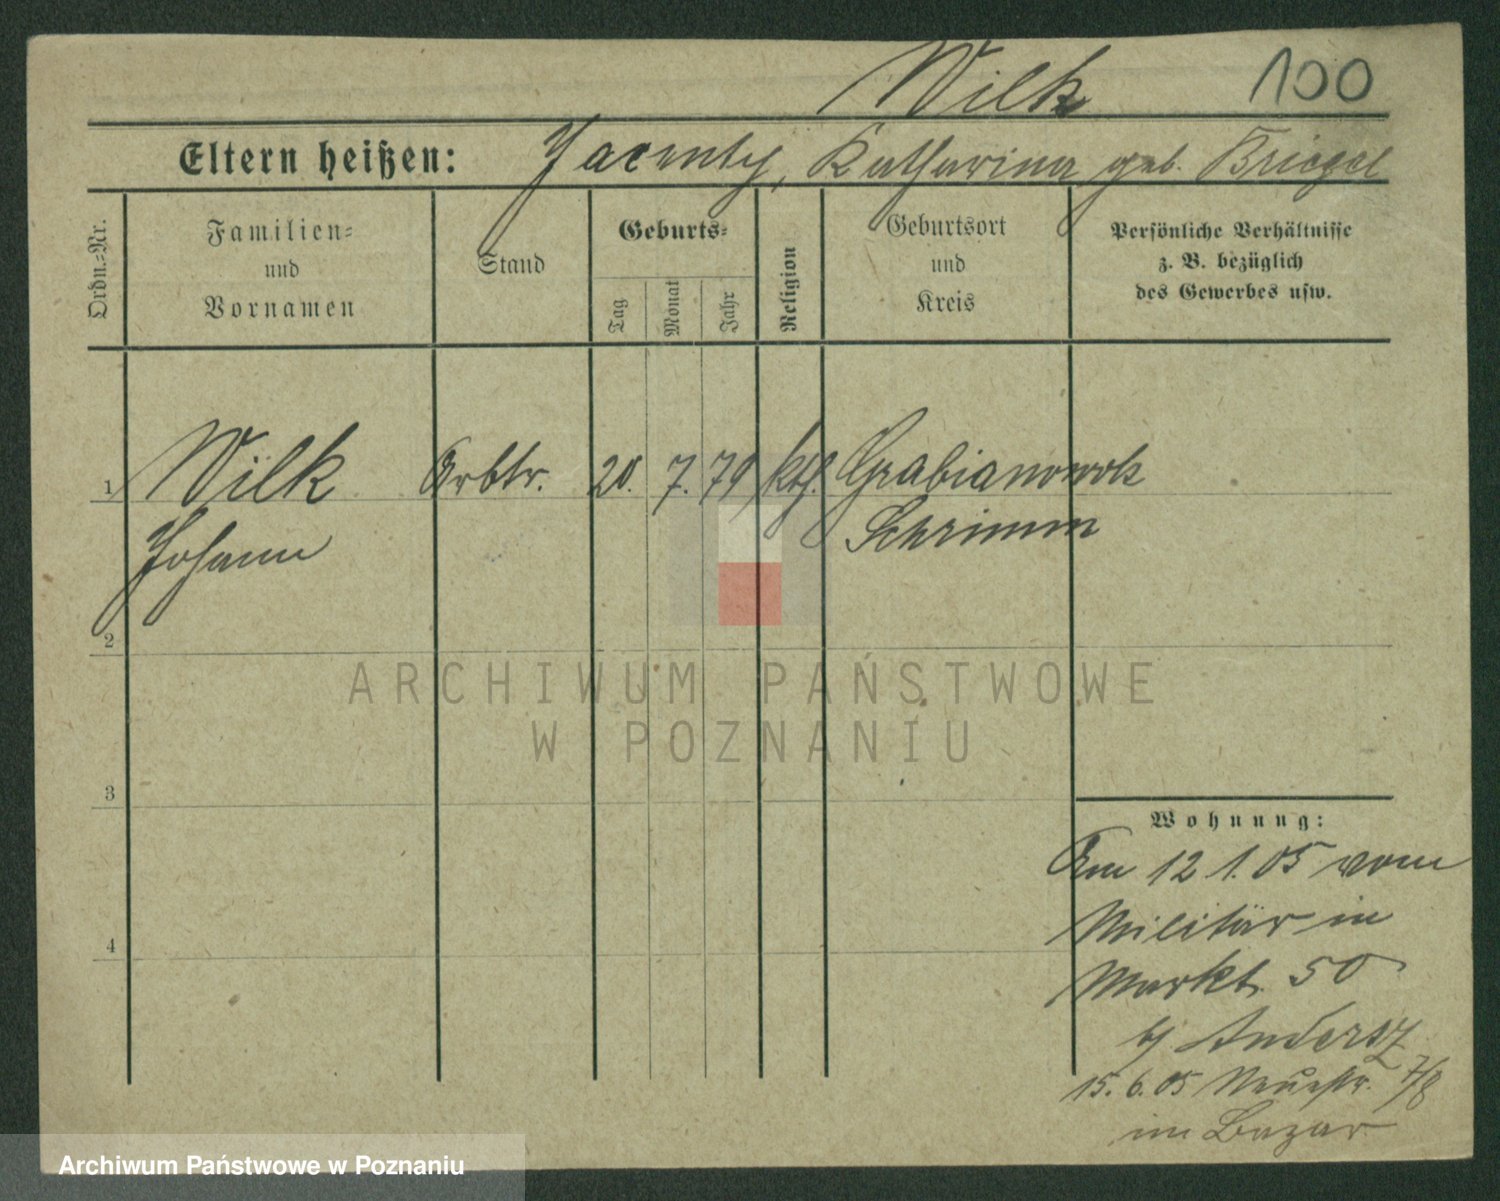 Wilk 100
Eltern heißen: Jacenty, Katharina geb. Briegel
Ordn.-Nr.
Familien-
und
Vornamen
Stand
Geburts-
Tag
Monat
Jahr
Religion
Geburtsort
und
Kreis
Persönliche Verhältnisse
z. B. bezüglich
des Gewerbes usw.
1 Wilk Arbtr. 20. 7. 79 kth. Grabianowok
Johann Schrimm
2
ARCHIWUM PAŃSTWOWE
W POZNANIU
3
4
Wohnung:
Am 12 1. 05 vom
Militär in
Markt. 50
bj Andersz
15. 6. 05 Neuestr. 7/8
im Bazar
Archiwum Państwowe w Poznaniu